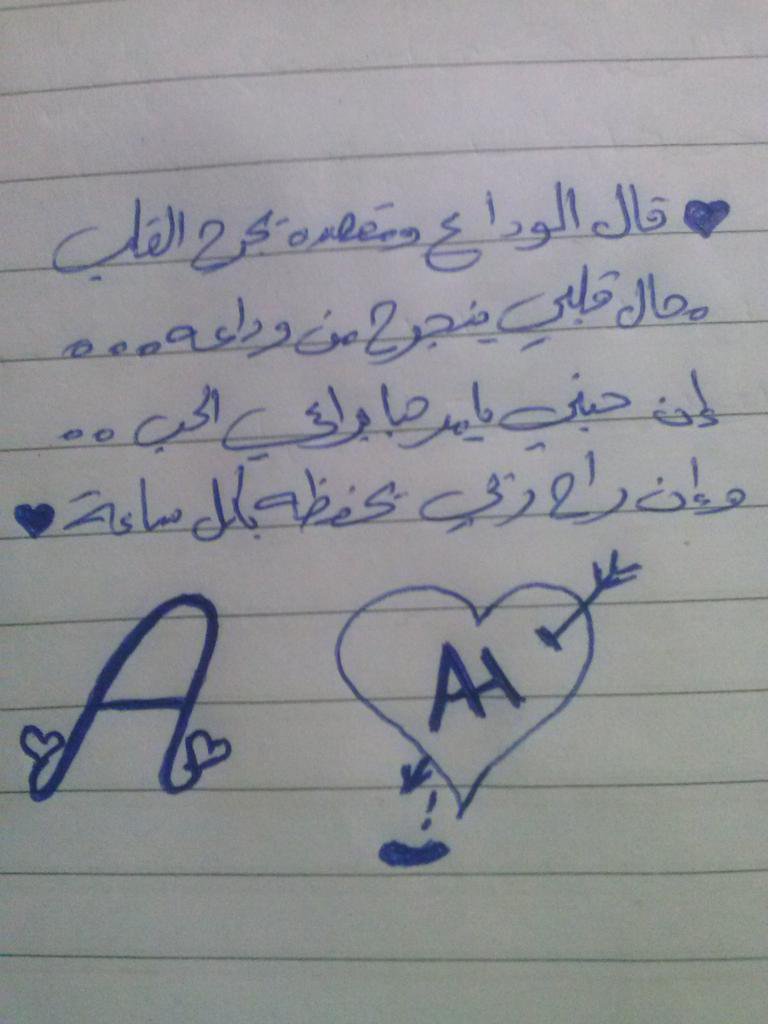 قال الوداع ومقصده تجرح القلب
محال قلبي ينجرح من وداعه...
إن حبني يا مرحبا براعي الحب..
وإن راح ربي يحفظه بكل ساعة
A
AH